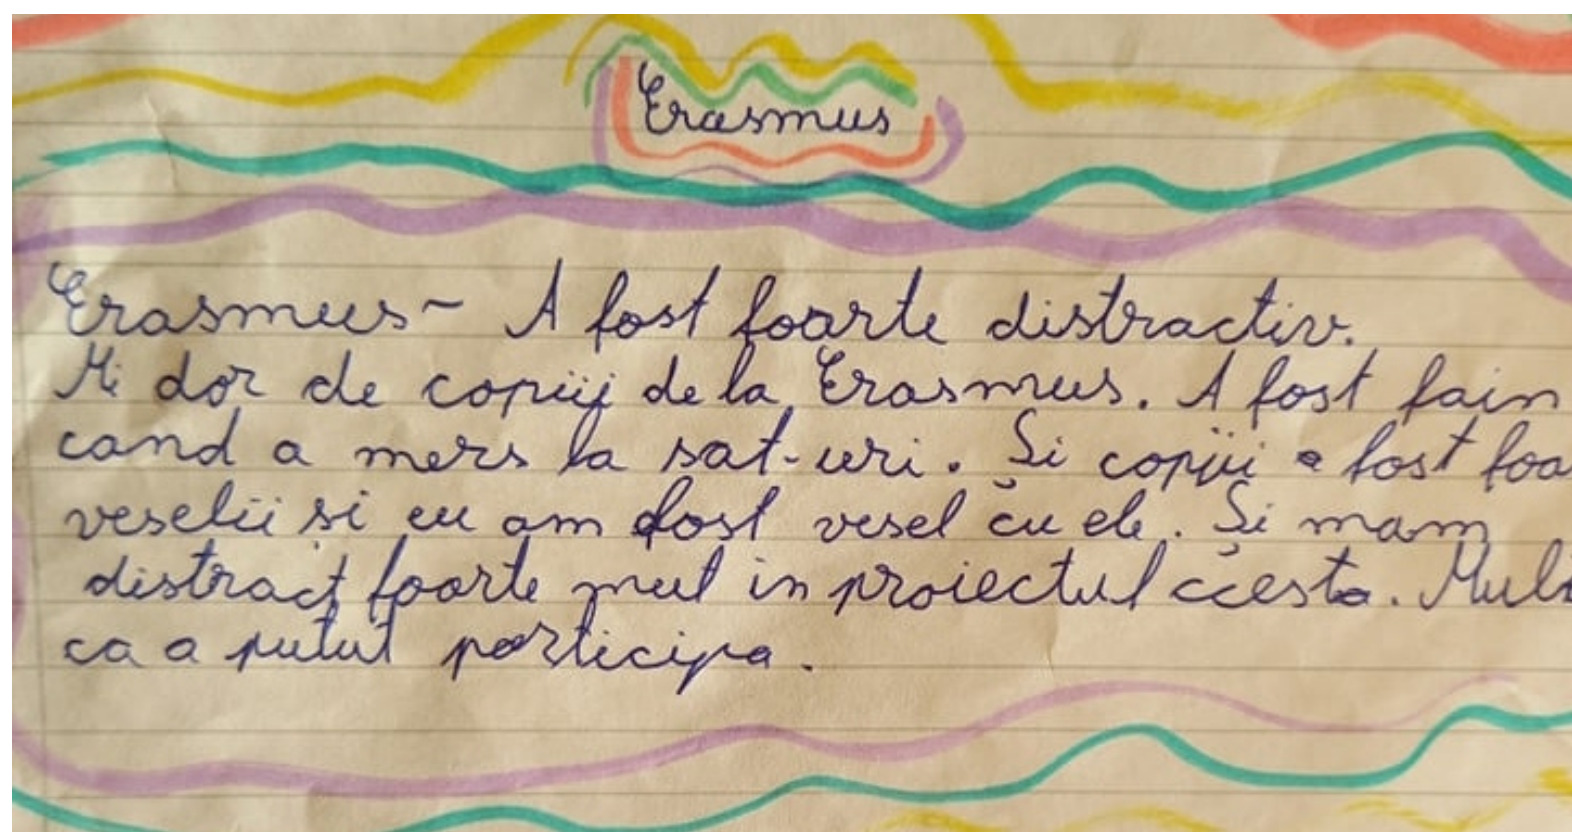 Erasmus
Erasmus- A fost foarte distractiv.
Mi dor de copiii de la Erasmus. A fost fain
cand a mers la sat-uri. Și copiii a fost foa
veselii si eu am fost vesel cu ele. Și mam
distract foarte mult in proiectul acesta. Mult
ca a putut participa.